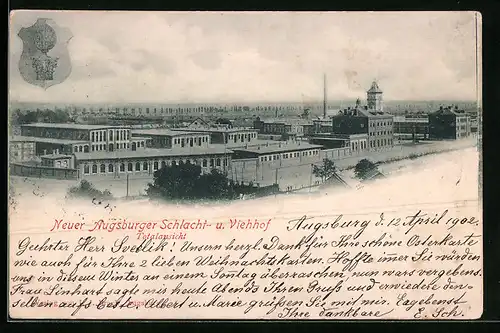 Neuer Augsburger Schlacht- u. Viehhof
Totalansicht
Augsburg d. 12 April 1902.
Geehrter Herr Svetlik! Unsern herzl. Dank für Ihre schöne Osterkarte
wie auch für Ihre 2 lieben Weihnachtskarten. Hoffte imer Sie würden
uns in diesem Winter an einem Sontag überraschen, nun wars vergebens.
Frau Linhart sagte mir heute Abends Ihren Gruß und erwiedere den-
selben aufs Beste. Albert u. Marie grüßen Sie, mit mir. Ergebenst
Ihre dankbare E. Sch.